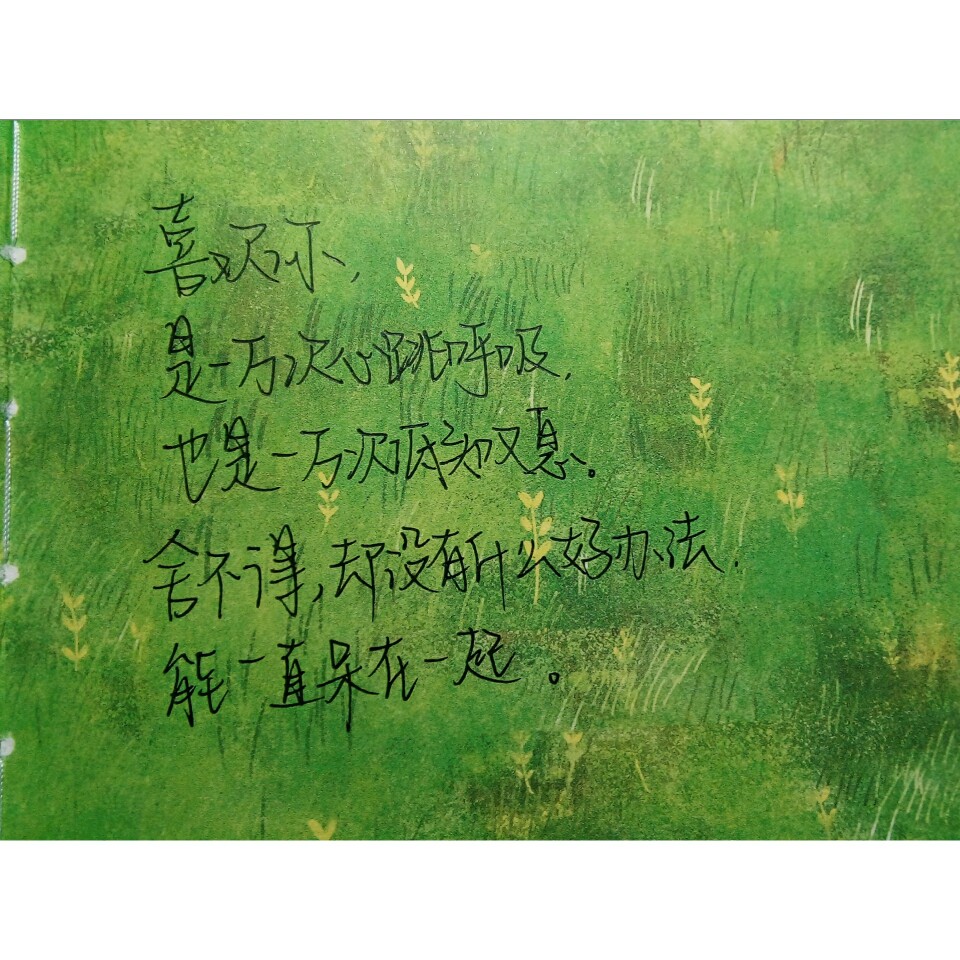 喜欢你,
是一万次心跳呼吸,
也是一万次低头叹息。
舍不得,却没有什么好办法,
能一直呆在一起。